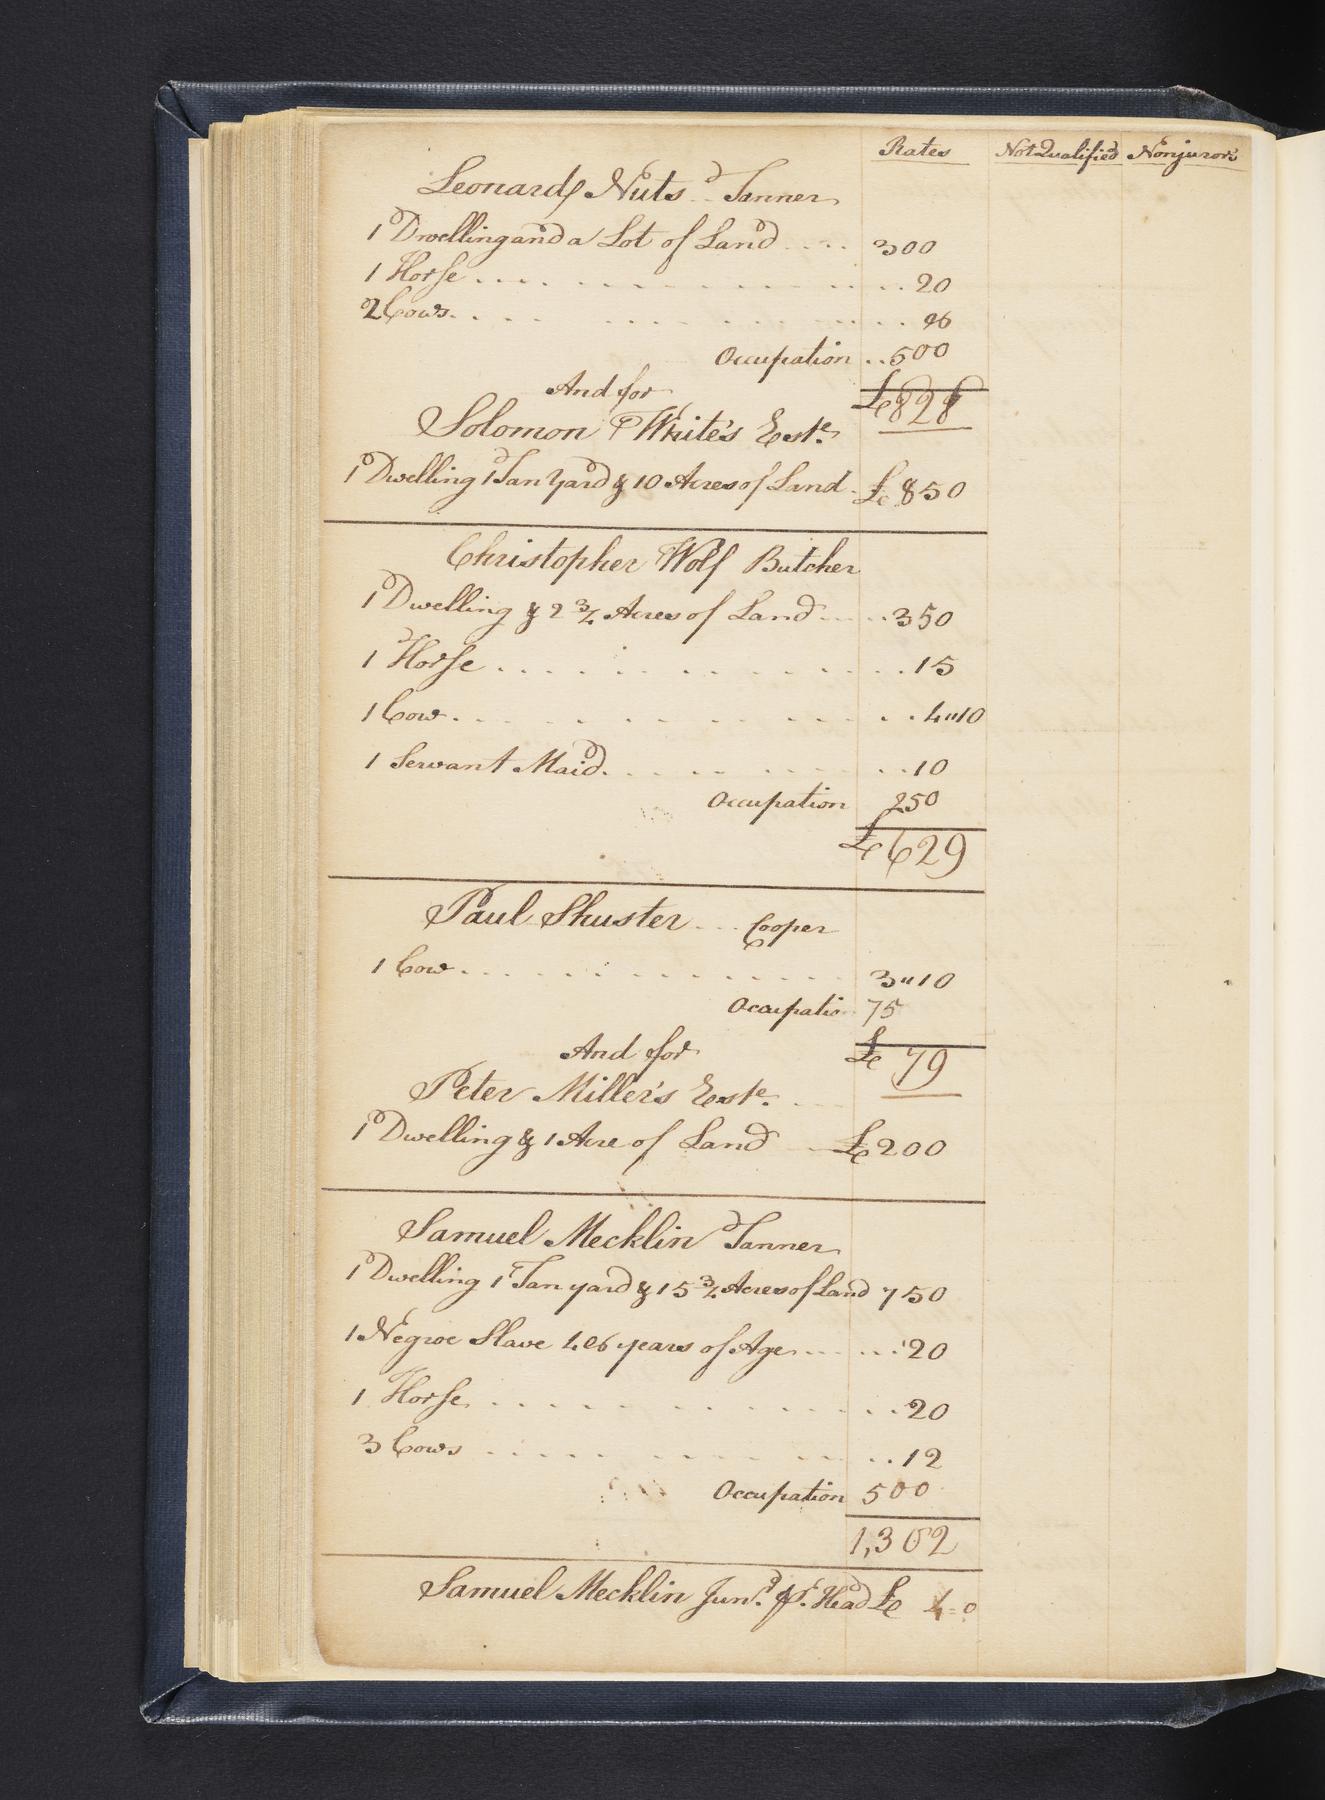 Rates Not Qualified Nonjurors
Leonard Nuts .. Tanner
1 Dwelling and a Lot of Land .... 300
1 Horse ... 20
2 Cows ... 8
Occupation .. 500
And for £828
Solomon White's Este.
1 Dwelling 1 Tan Yard & 10 Acres of Land .. £850
Christopher Wolf Butcher
1 Dwelling & 2 3/4 Acres of Land .... 350
1 Horse ... 15
1 Cow ... 4"10
1 Servant Maid ... 10
Occupation 250
£629
Paul Shuster ... Cooper
1 Cow ... 3"10
Occupatio 75
And for £79
Peter Miller's Este. ...
1 Dwelling & 1 Acre of Land £200
Samuel Mecklin Tanner
1 Dwelling 1 Tan yard & 15 3/4 Acres of Land 750
1 Negroe Slave years of Age ... 20
1 Horse ... 20
3 Cows ... 12
Occupation 500
1,302
Samuel Mecklin Junr. pr. Head £